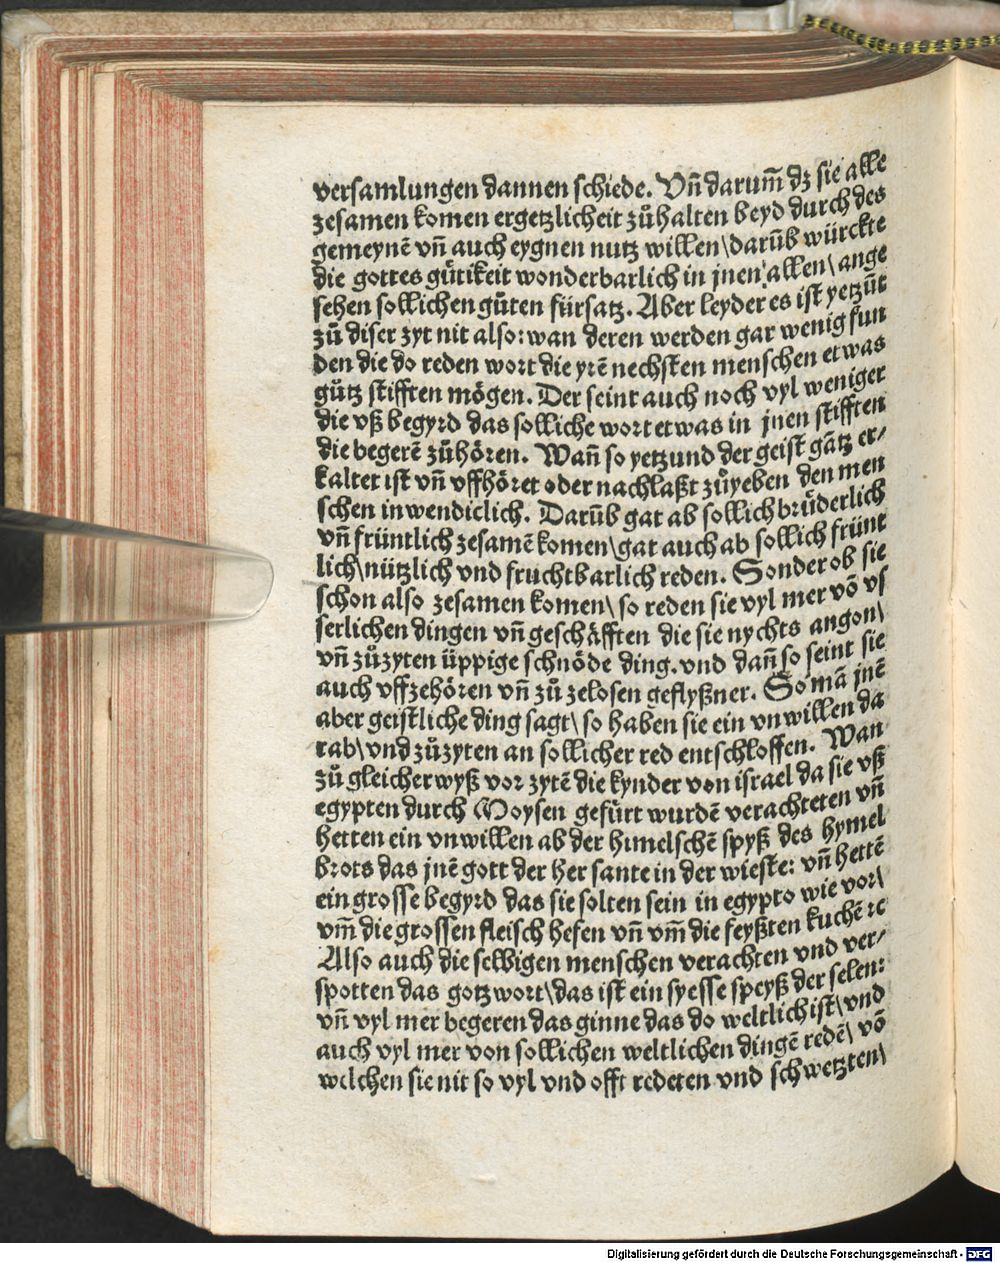 versamlungen dannen schiede. Vñ darum̄ dz sie alle
zesamen komen ergetzlicheit zůhalten beyd durch des
gemeynē vñ auch eygnen nutz willen\darūb würckte
die gottes gütikeit wonderbarlich in jnen allen\ ange
sehen sollichen gůten fürsatz. Aber leyder es ist yetzūt
zů diser zyt nit also: wan deren werden gar wenig fun
den die do reden wort die yrē nechsten menschen etwas
gůtz stifften mögen. Der seint auch noch vyl weniger
die vß begyrd das solliche wort etwas in jnen stifften
die begerē zůhören. Wañ so yetzund der geist gātz er/
kaltet ist vñ vffhöret oder nachlaßt zůyeben den men
schen inwendiclich. Darūb gat ab sollich brüderlich
vñ früntlich zesamē komen\gat auch ab sollich frünt
lich\nützlich vnd fruchtbarlich reden. Sonder ob sie
schon also zesamen komen\ so reden sie vyl mer vō vs
serlichen dingen vñ geschäfften die sie nychts angon\
vñ zůzyten üppige schnöde ding. vnd dañ so seint sie
auch vffzehören vñ zů zelosen geflyßner. So mā jnē
aber geistliche ding sagt\ so haben sie ein vnwillen da
rab\vnd zůzyten an sollicher red entschloffen. Wan
zů gleicher wyß vor zytē die kynder von israel da sie vß
egypten durch Moysen gefürt wurdē verachteten vñ
hetten ein vnwillen ab der himelschē spyß des hymel
brots das jnē gott der her sante in der wieste: vñ hettē
ein grosse begyrd das sie solten sein in egypto wie vor\
vm̄ die grossen fleisch hefen vñ vm̄ die feyßten kuchē ꝛc
Also auch die selbigen menschen verachten vnd ver/
spotten das gotzwort\das ist ein syesse speyß der selen:
vñ vyl mer begeren das ginne das do weltlich ist\vnd
auch vyl mer von sollichen weltlichen dingē redē\ vō
welchen sie nit so vyl vnd offt redeten vnd schwetzten\
Digitalisierung gefördert durch die Deutsche Forschungsgemeinschaft - DFG